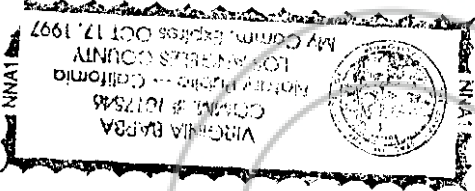 VIRGINIA BARBA
COMM. #
Notary Public — California
LOS ANGELES COUNTY
My Comm. Expires OCT 17, 1997
NNA1
NNA1